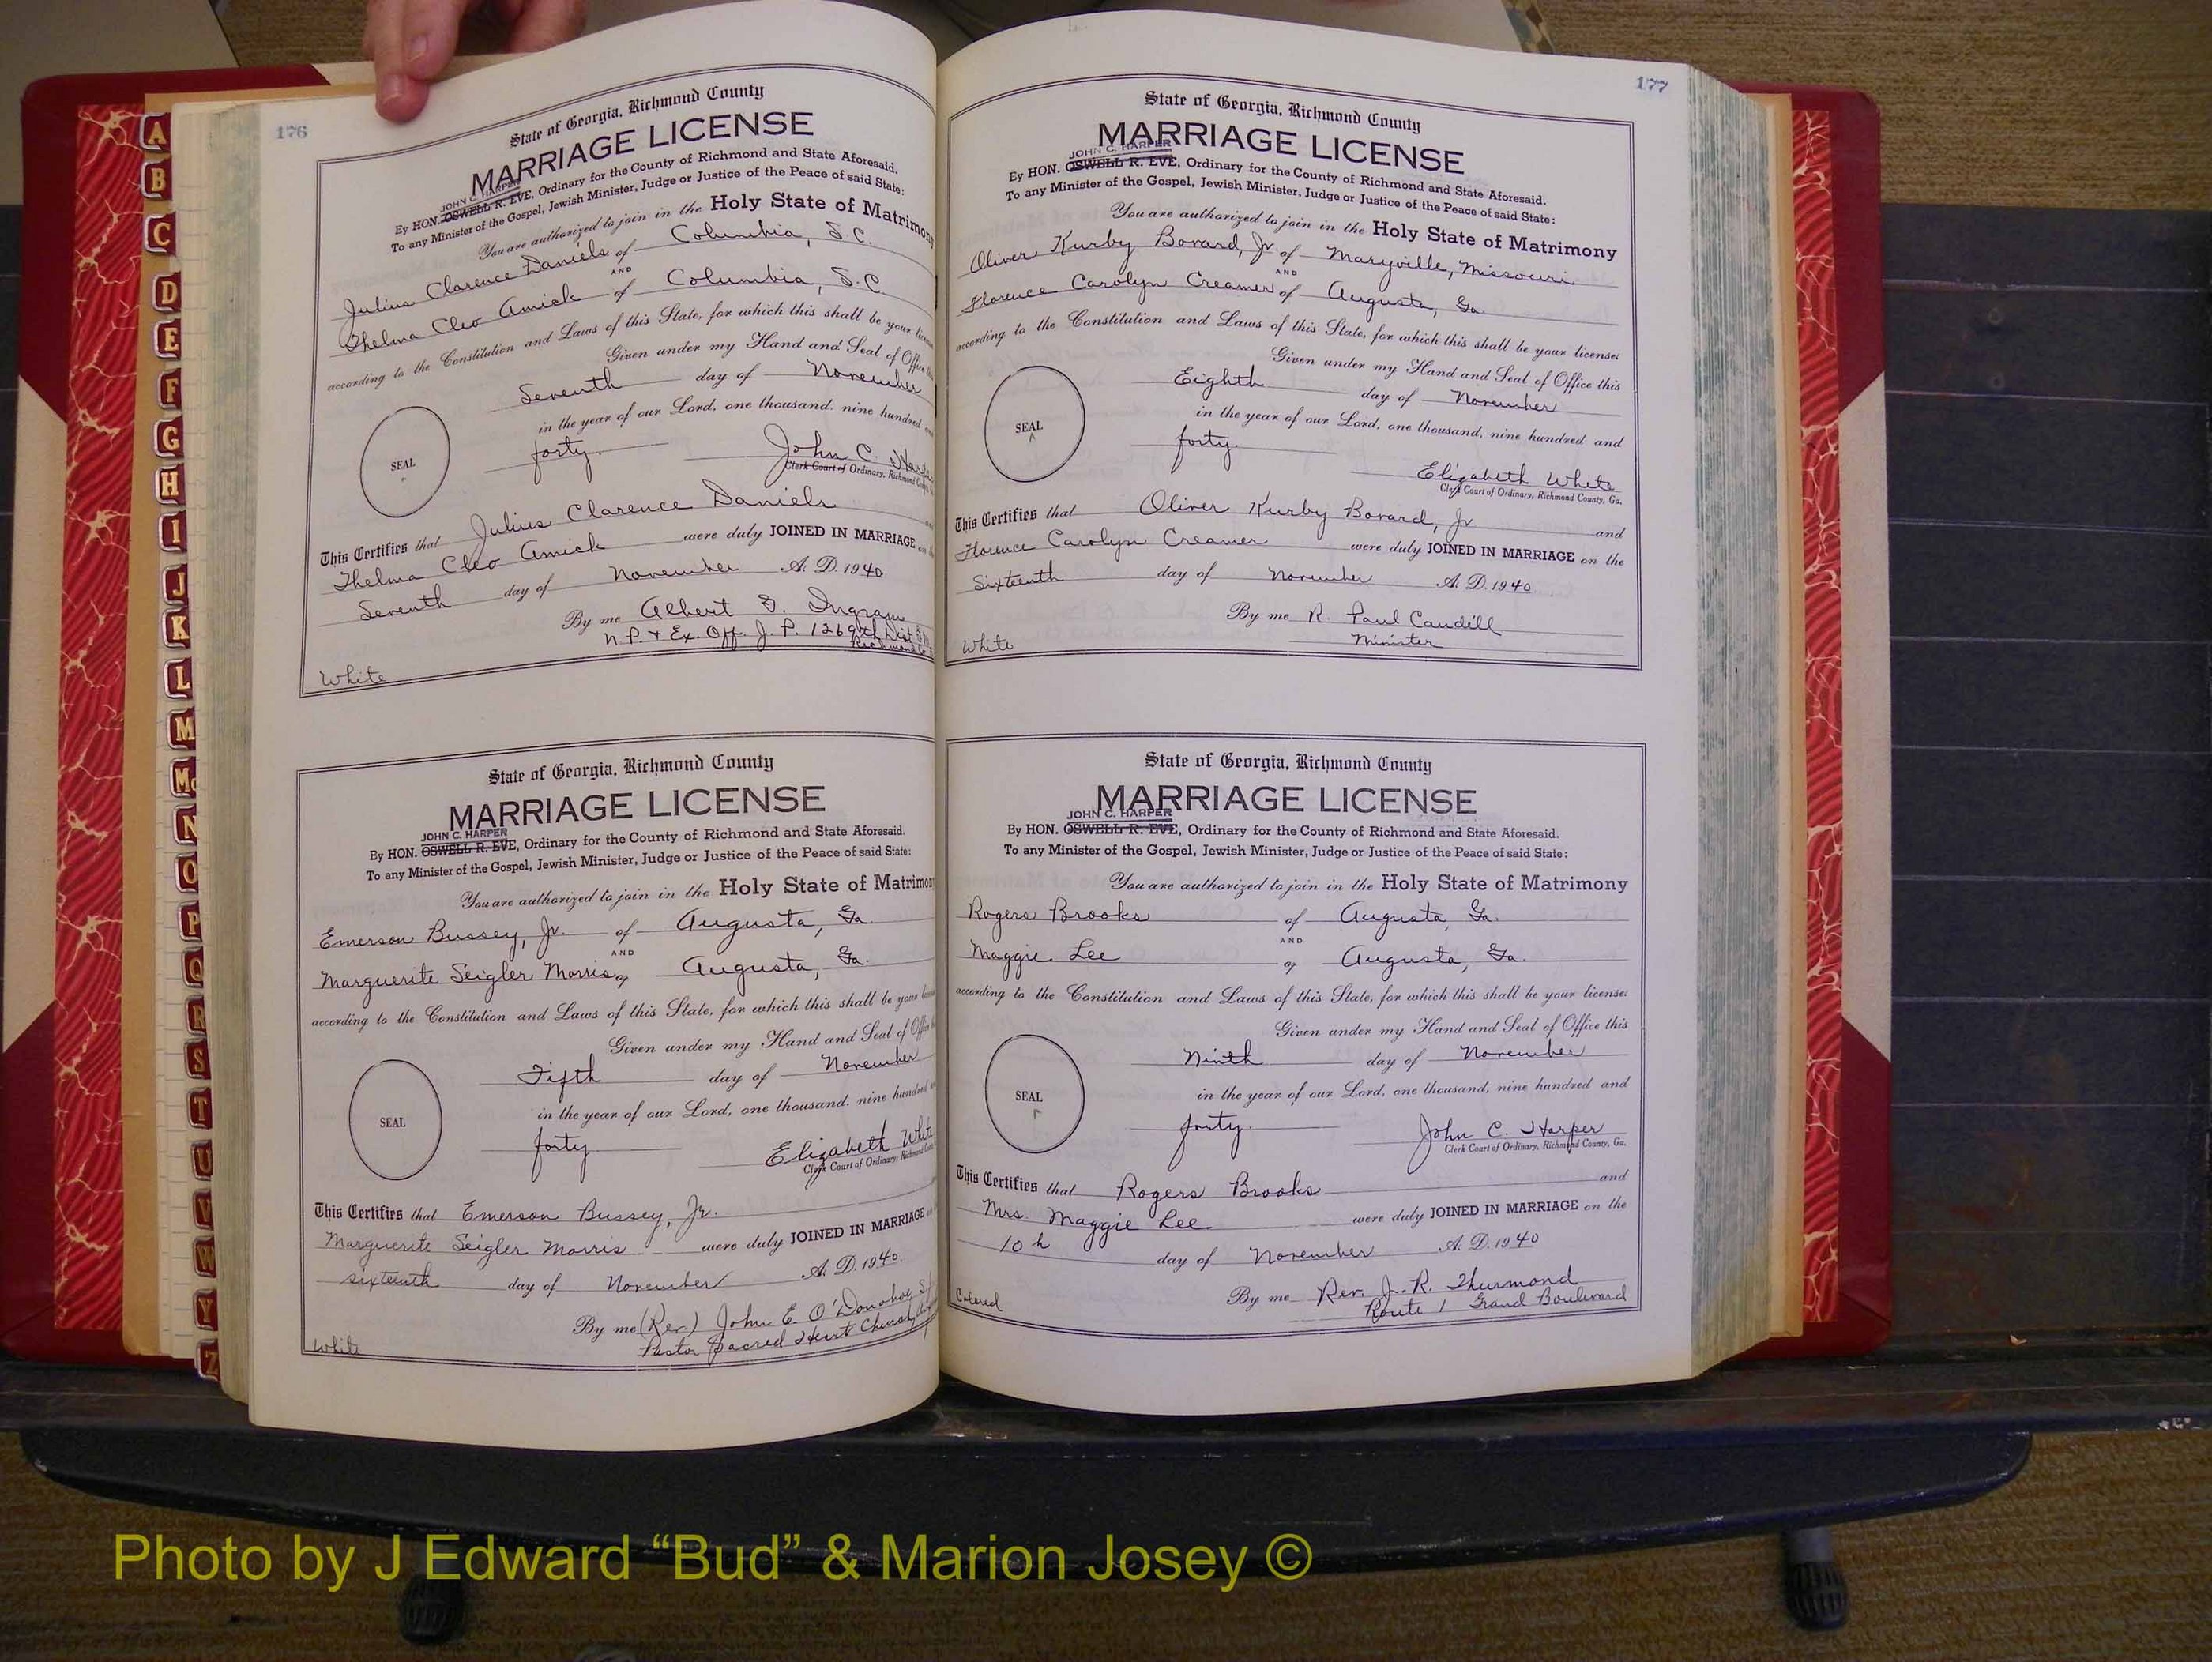 A
B
C
D
E
F
G
H
I
J
K
L
M
Mc
N
O
P
Q
R
S
T
U
V
W
Y
Z
176
State of Georgia, Richmond County
MARRIAGE LICENSE
JOHN C. HARPER
By HON. OSWELL R. EVE, Ordinary for the County of Richmond and State Aforesaid.
To any Minister of the Gospel, Jewish Minister, Judge or Justice of the Peace of said State:
You are authorized to join in the Holy State of Matrimony
Julius Clarence Daniels of Columbia, S.C.
AND
Thelma Cleo Amick of Columbia, S.C.
according to the Constitution and Laws of this State, for which this shall be your
Given under my Hand and Seal of Office
Seventh day of November
in the year of our Lord, one thousand, nine hundred
forty.
SEAL
John C.
Clerk Court of Ordinary, Richmond
This Certifies that Julius Clarence Daniels
Thelma Cleo Amick were duly JOINED IN MARRIAGE
Seventh day of November A. D. 1940
By me Albert G. Ingram
N.P. & Ex. Off. J. P. 1269th Dist
Richmond
White
State of Georgia, Richmond County
MARRIAGE LICENSE
JOHN C. HARPER
By HON. OSWELL R. EVE, Ordinary for the County of Richmond and State Aforesaid.
To any Minister of the Gospel, Jewish Minister, Judge or Justice of the Peace of said State:
You are authorized to join in the Holy State of Matrimony
Emerson Bussey, Jr. of Augusta, Ga.
AND
Marguerite Seigler Morris of Augusta, Ga.
according to the Constitution and Laws of this State, for which this shall be your
Given under my Hand and Seal of Office
Fifth day of November
in the year of our Lord, one thousand, nine hundred
forty
SEAL
Elizabeth White
Clerk Court of Ordinary, Richmond
This Certifies that Emerson Bussey, Jr.
Marguerite Seigler Morris were duly JOINED IN MARRIAGE
sixteenth day of November A. D. 1940.
By me (Rev) John E. O'Donohoe
Pastor Sacred Heart Church
White
177
State of Georgia, Richmond County
MARRIAGE LICENSE
JOHN C. HARPER
By HON. OSWELL R. EVE, Ordinary for the County of Richmond and State Aforesaid.
To any Minister of the Gospel, Jewish Minister, Judge or Justice of the Peace of said State:
You are authorized to join in the Holy State of Matrimony
Oliver Kurby Bovard, Jr. of Maryville, Missouri
AND
Florence Carolyn Creamer of Augusta, Ga.
according to the Constitution and Laws of this State, for which this shall be your license:
Given under my Hand and Seal of Office this
Eighth day of November
in the year of our Lord, one thousand, nine hundred and
forty.
SEAL
Elizabeth White
Clerk Court of Ordinary, Richmond County, Ga.
This Certifies that Oliver Kurby Bovard, Jr and
Florence Carolyn Creamer were duly JOINED IN MARRIAGE on the
Sixteenth day of November A. D. 1940
By me R. Paul Caudill
Minister
White
State of Georgia, Richmond County
MARRIAGE LICENSE
JOHN C. HARPER
By HON. OSWELL R. EVE, Ordinary for the County of Richmond and State Aforesaid.
To any Minister of the Gospel, Jewish Minister, Judge or Justice of the Peace of said State:
You are authorized to join in the Holy State of Matrimony
Rogers Brooks of Augusta, Ga.
AND
Maggie Lee of Augusta, Ga.
according to the Constitution and Laws of this State, for which this shall be your license:
Given under my Hand and Seal of Office this
Ninth day of November
in the year of our Lord, one thousand, nine hundred and
forty.
SEAL
John C. Harper
Clerk Court of Ordinary, Richmond County, Ga.
This Certifies that Rogers Brooks and
Mrs. Maggie Lee were duly JOINED IN MARRIAGE on the
10 h day of November A. D. 1940
By me Rev. J. R. Thurmond
Route 1 Grand Boulevard
Colored
Photo by J Edward “Bud” & Marion Josey ©